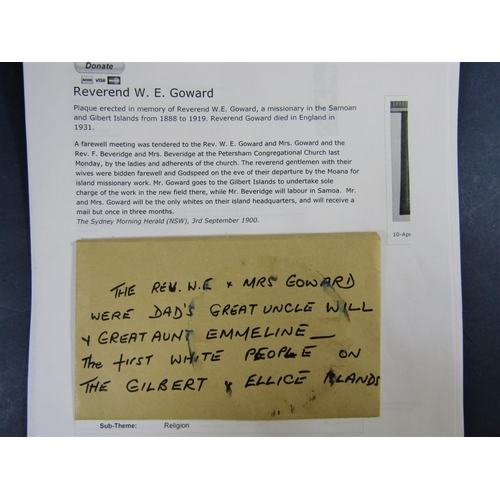 Donate
VISA
Reverend W. E. Goward
Plaque erected in memory of Reverend W.E. Goward, a missionary in the Samoan
and Gibert Islands from 1888 to 1919. Reverend Goward died in England in
1931.
A farewell meeting was tendered to the Rev. W. E. Goward and Mrs. Goward and the
Rev. F. Beveridge and Mrs. Beveridge at the Petersham Congregational Church last
Monday, by the ladies and adherents of the church. The reverend gentlemen with their
wives were bidden farewell and Godspeed on the eve of their departure by the Moana for
island missionary work. Mr. Goward goes to the Gilbert Islands to undertake sole
charge of the work in the new field there, while Mr. Beveridge will labour in Samoa. Mr.
and Mrs. Goward will be the only whites on their island headquarters, and will receive a
mail but once in three months.
The Sydney Morning Herald (NSW), 3rd September 1900.
10-Apr
THE REV. W.E & MRS GOWARD
WERE DAD'S GREAT UNCLE WILL
& GREAT AUNT EMMELINE —
The first WHITE PEOPLE ON
THE GILBERT & ELLICE ISLANDS
Sub-Theme: Religion